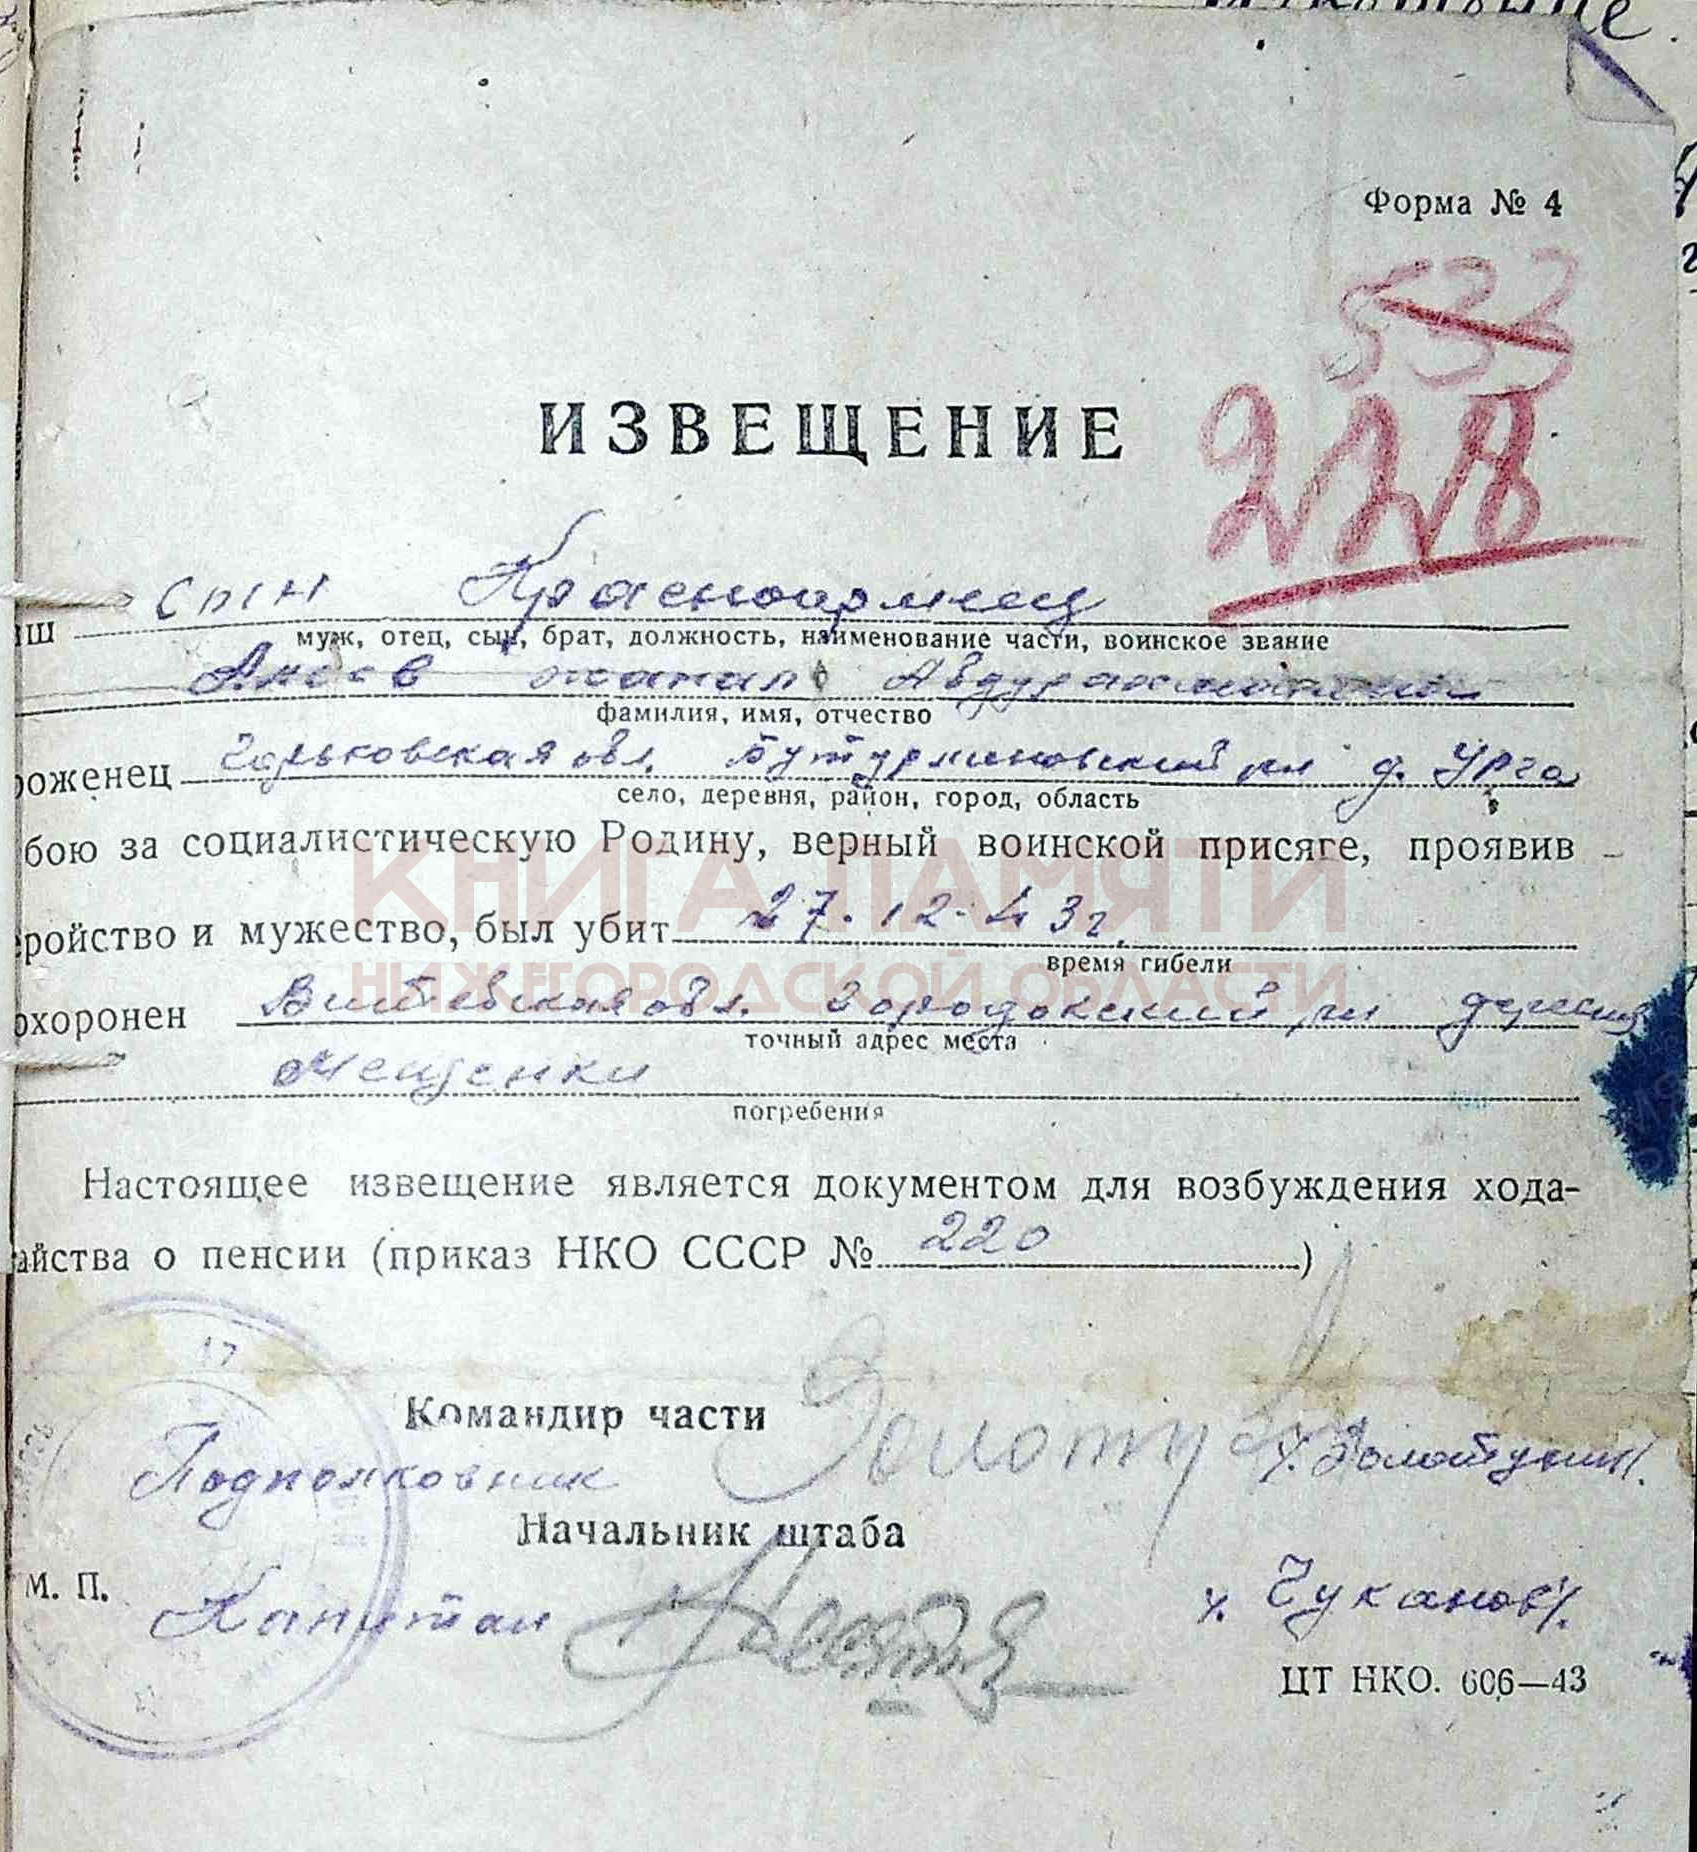 Форма № 4
533
228
ИЗВЕЩЕНИЕ
иш сын Красноармеец
муж, отец, сын, брат, должность, наименование части, воинское звание
Анеев Жанап Абдурахманович
фамилия, имя, отчество
роженец Горьковская обл. Бутурлиновский рн д. Урга
село, деревня, район, город, область
бою за социалистическую Родину, верный воинской присяге, проявив
еройство и мужество, был убит 27.12.43г.
время гибели
охоронен Витебская обл. Городокский рн деревня
точный адрес места
Мещенки
погребения
Настоящее извещение является документом для возбуждения хода-
айства о пенсии (приказ НКО СССР № 220)
Командир части
Подполковник Золоту /Золотухин/.
Начальник штаба
М. П. Капитан /Чуканов/.
ЦТ НКО. 606—43
КНИГА ПАМЯТИ
НИЖЕГОРОДСКОЙ ОБЛАСТИ